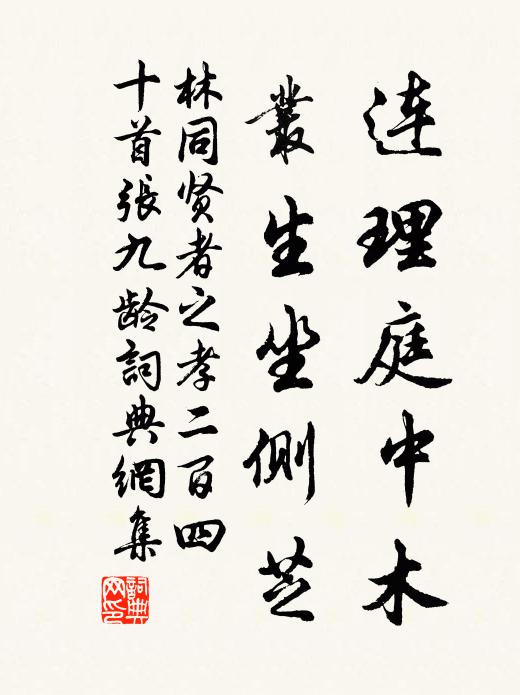 连理庭中木
叢生坐側芝
林同贤者之孝二百四
十首張九龄詞典網集
詞典
网印